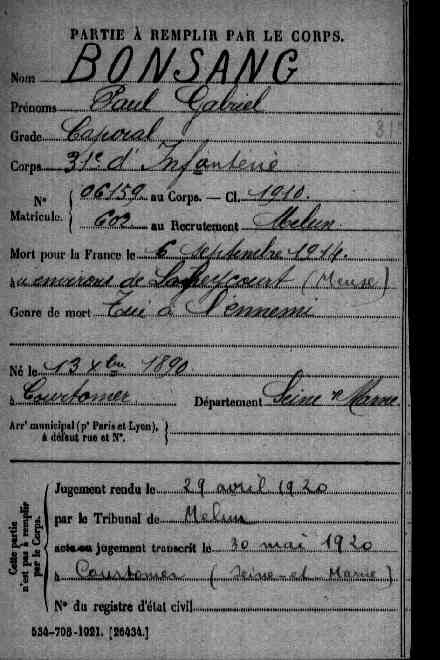 PARTIE À REMPLIR PAR LE CORPS.
Nom BONSANG
Prénoms Paul Gabriel
Grade Caporal
31
Corps 31e d'Infanterie
N° Matricule. { 06159 au Corps. — Cl. 1910.
602 au Recrutement Melun
Mort pour la France le 6 septembre 1914.
à environs de (Meuse)
Genre de mort Tué à l'ennemi
Né le 13 Xbre 1890
à Courtomer Département Seine & Marne.
Arrt municipal (pr Paris et Lyon), à défaut rue et N°. }
Cette partie n'est pas à remplir par le Corps.
Jugement rendu le 29 avril 1920
par le Tribunal de Melun
acte ou jugement transcrit le 30 mai 1920
à Courtomer (Seine-et-Marne)
N° du registre d'état civil
534-708-1921. [26434.]